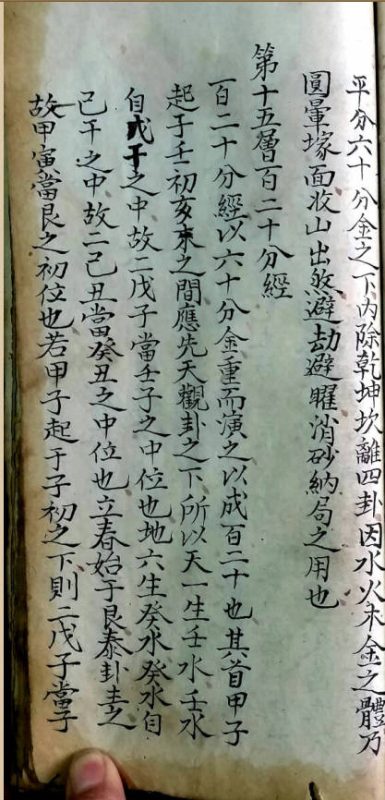 平分六十分金之下内除乾坤坎離四卦因水火未金之體乃
圓暈塚面收山出煞避劫避曜消砂納局之用也
第十五層百二十分經
百二十分經以六十分金重而演之以成百二十也其首甲子
起于壬初亥末之間應先天觀卦之下所以天一生壬水壬水
自戊干之中故二戊子當壬子之中位也地六生癸水癸水自
己干之中故二己丑當癸丑之中位也立春始于艮泰卦圭之
故甲寅當艮之初位也若甲子起于子初之下則二戊子當子